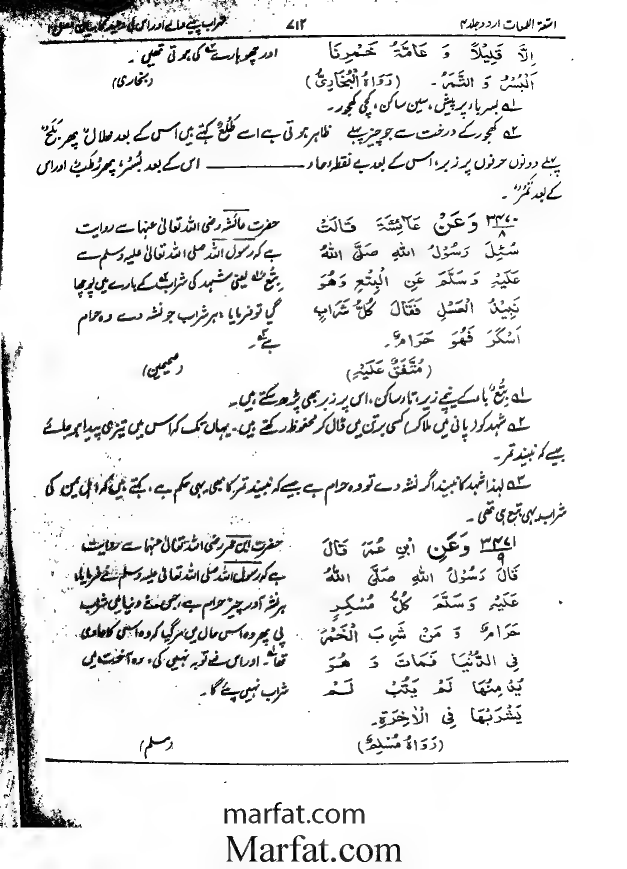 اشعۃ اللمعات اردو جلد ۴
۷۱۲
شراب پینے والے اور اس کی وعید کا بیان
اِلَّا قَلِیْلًا وَ عَامَّۃُ خَمْرِنَا
الْبُسْرُ وَ التَّمْرُ۔ (رَوَاہُ الْبُخَارِیُّ)
اور چھوہارے ۲؎ کی ہوتی تھی۔
(بخاری)
۱؎ بسر باء پر پیش، سین ساکن، کچی کھجور۔
۲؎ کھجور کے درخت سے جو چیز پہلے ظاہر ہوتی ہے اسے طَلْعٌ کہتے ہیں اس کے بعد خلال پھر بَلَحٌ
پہلے دونوں حرفوں پر زبر، اس کے بعد بے نقطہ حاء ــــــــ اس کے بعد بُسْرٌ، پھر رُطَبٌ اور اس
کے بعد تَمْرٌ۔
۳۴۷۰/۸ وَعَنْ عَائِشَۃَ قَالَتْ
سُئِلَ رَسُوْلُ اللهِ صَلَّی اللهُ
عَلَیْہِ وَسَلَّمَ عَنِ الْبِتْعِ وَهُوَ
نَبِیْذُ الْعَسَلِ فَقَالَ کُلُّ شَرَابٍ
اَسْکَرَ فَهُوَ حَرَامٌ۔
(مُتَّفَقٌ عَلَیْہِ)
حضرت عائشہ رضی اللہ تعالیٰ عنہا سے روایت
ہے کہ رسول اللہ صلی اللہ تعالیٰ علیہ وسلم سے
بِتْع ۱؎ یعنی شہد کی شراب ۲؎ کے بارے میں پوچھا
گیا تو فرمایا: ہر شراب جو نشہ دے وہ حرام
ہے ۳؎۔
(صحیحین)
۱؎ بِتْع باء کے نیچے زیر، تاء ساکن، اس پر زبر بھی پڑھ سکتے ہیں۔
۲؎ شہد کو (پانی میں ملا کر) کسی برتن میں ڈال کر محفوظ رکھتے ہیں۔ یہاں تک کہ اس میں تیزی پیدا ہو جائے
جیسے کہ نبیذ تمر۔
۳؎ لہٰذا شہد کا نبیذ اگر نشہ دے تو وہ حرام ہے جیسے کہ نبیذ تمر کا بھی یہی حکم ہے، کہتے ہیں کہ اہل یمن کی
شراب یہی بتع ہی تھی۔
۳۴۷۱/۹ وَعَنِ ابْنِ عُمَرَ قَالَ
قَالَ رَسُوْلُ اللهِ صَلَّی اللهُ
عَلَیْہِ وَسَلَّمَ کُلُّ مُسْکِرٍ
حَرَامٌ وَ مَنْ شَرِبَ الْخَمْرَ
فِی الدُّنْیَا فَمَاتَ وَ هُوَ
یُدْمِنُهَا لَمْ یَتُبْ لَمْ
یَشْرَبْهَا فِی الْاٰخِرَۃِ۔
(رَوَاہُ مُسْلِمٌ)
حضرت ابن عمر رضی اللہ تعالیٰ عنہما سے روایت
ہے کہ رسول اللہ صلی اللہ تعالیٰ علیہ وسلم نے فرمایا:
ہر نشہ آور چیز حرام ہے، جس نے دنیا میں شراب
پی پھر وہ اس حال میں مر گیا کہ وہ اس کا عادی
تھا ۱؎ اور اس نے توبہ نہیں کی، وہ آخرت میں
شراب نہیں پئے گا۔
(مسلم)
marfat.com
Marfat.com